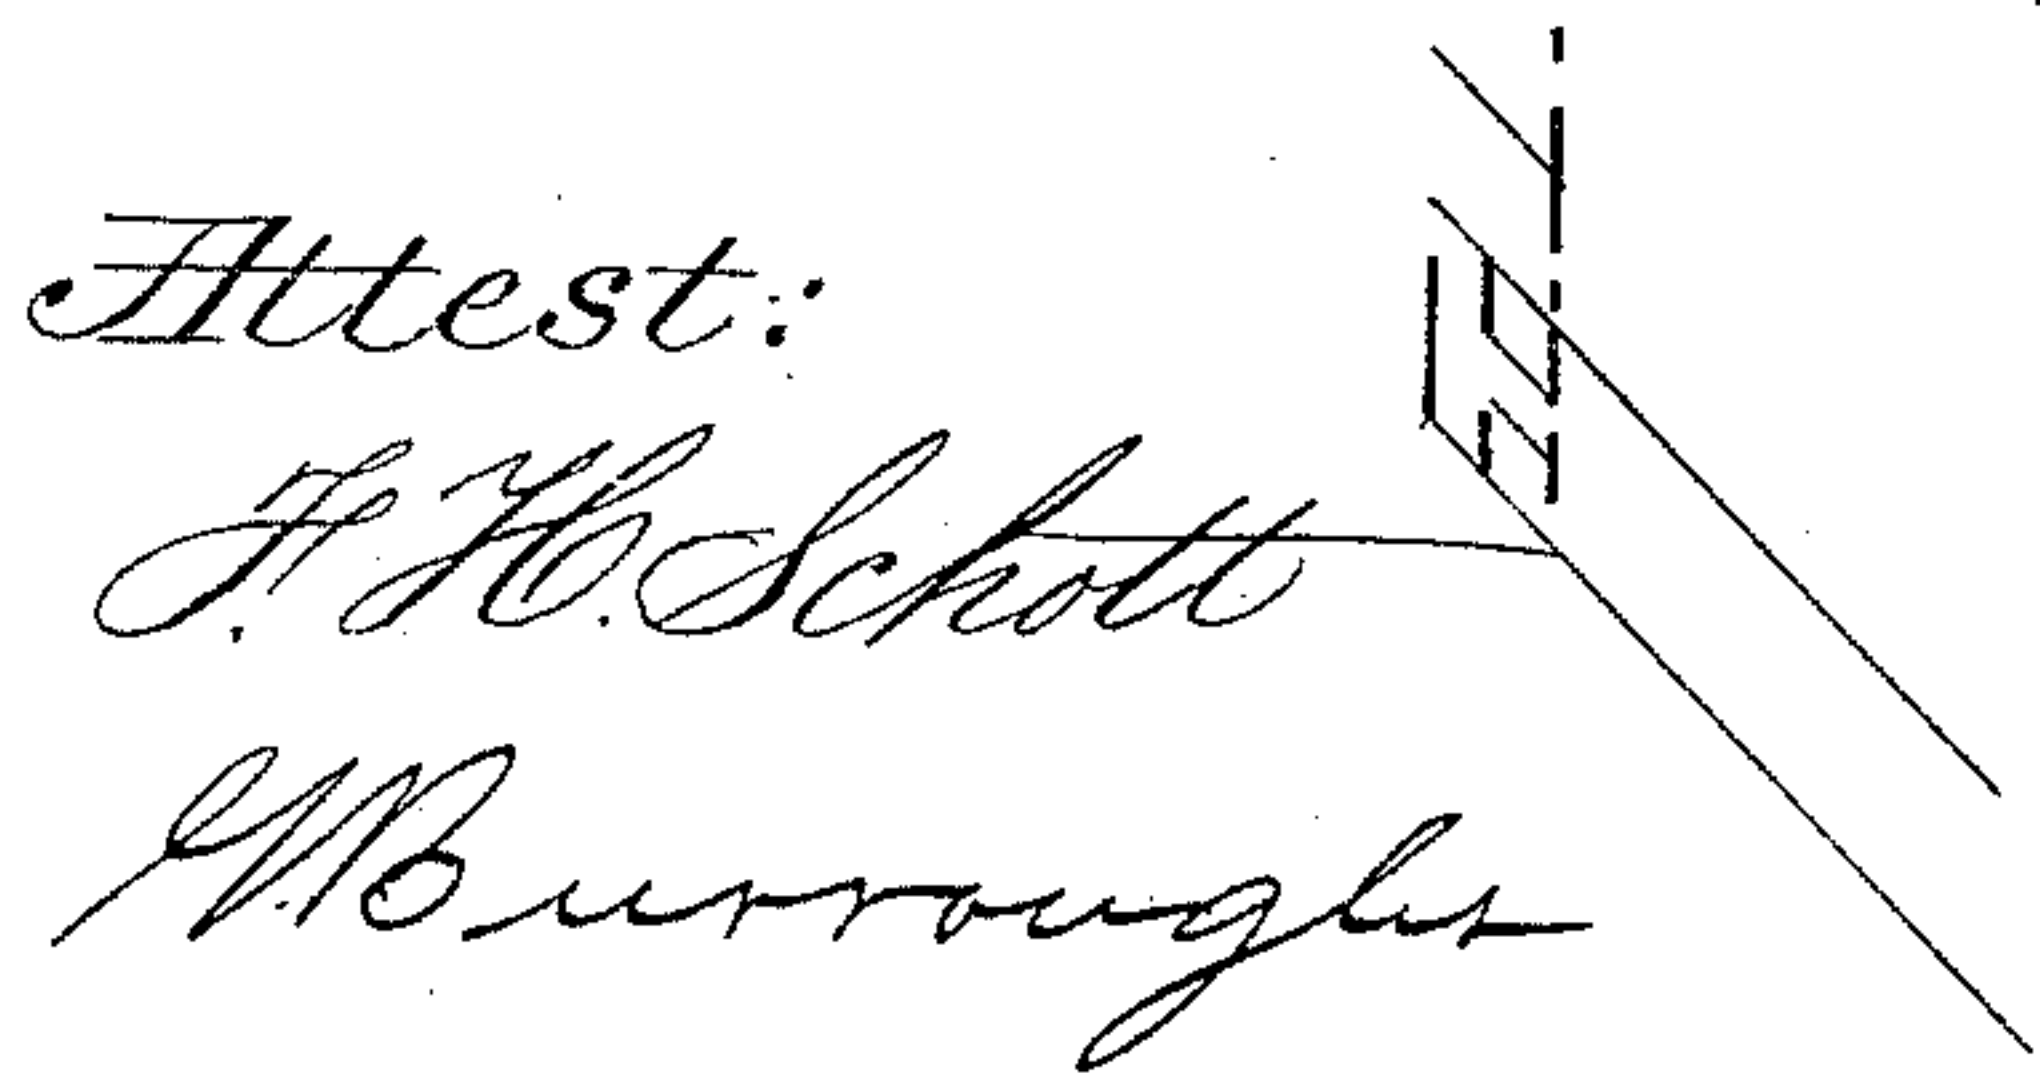 Attest:
F. H. Schott
Burroughs